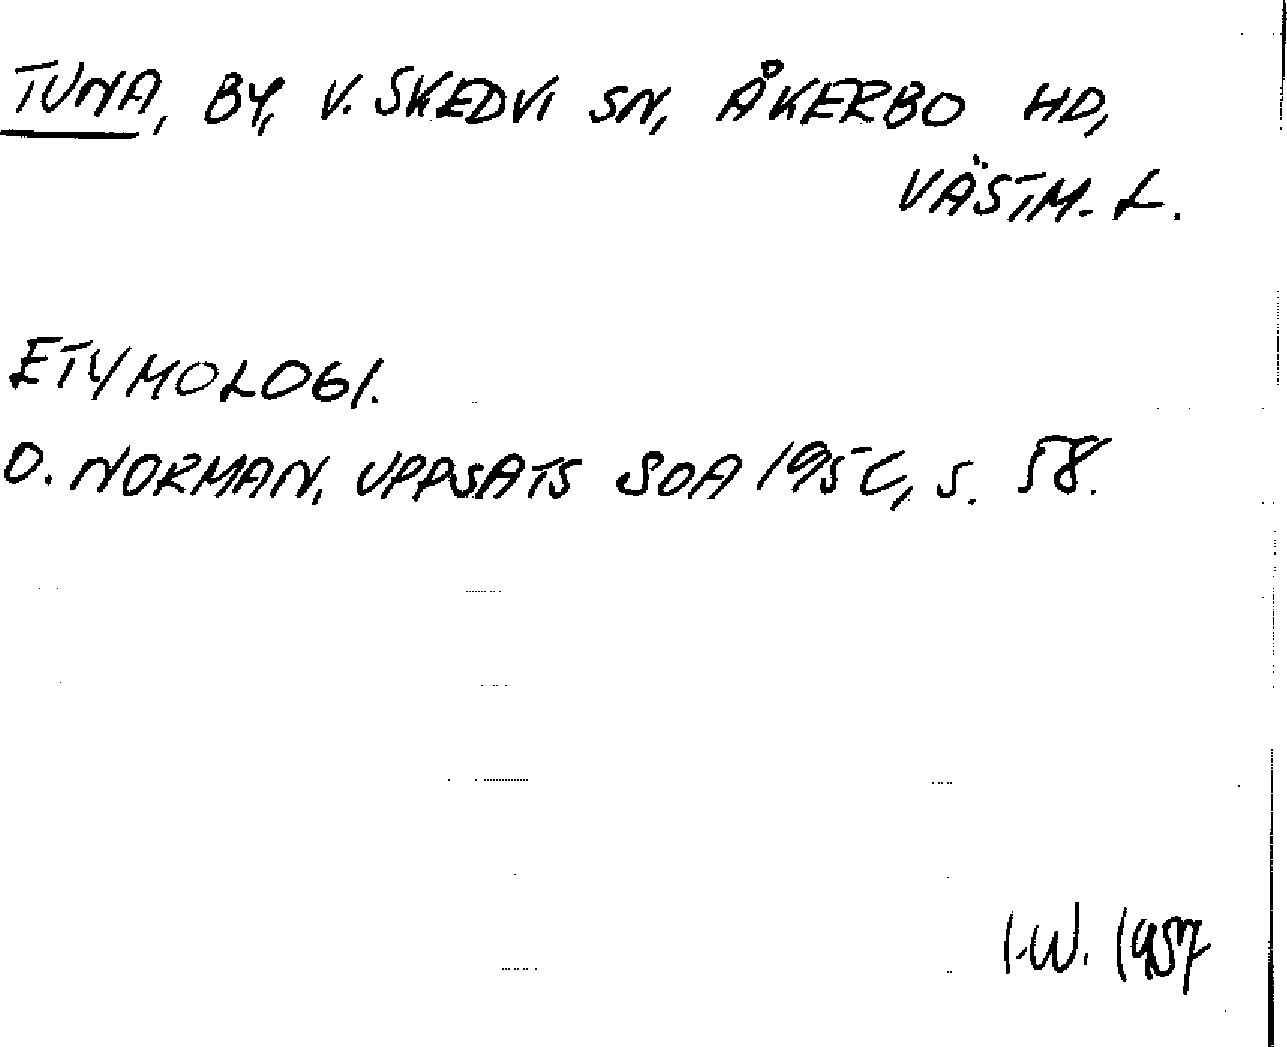 TUNA, BY, V. SKEDVI SN, ÅKERBO HD,
VÄSTM. L.
ETYMOLOGI.
O. NORMAN, UPPSATS SOA 1956, S. 58.
I.W. 1957